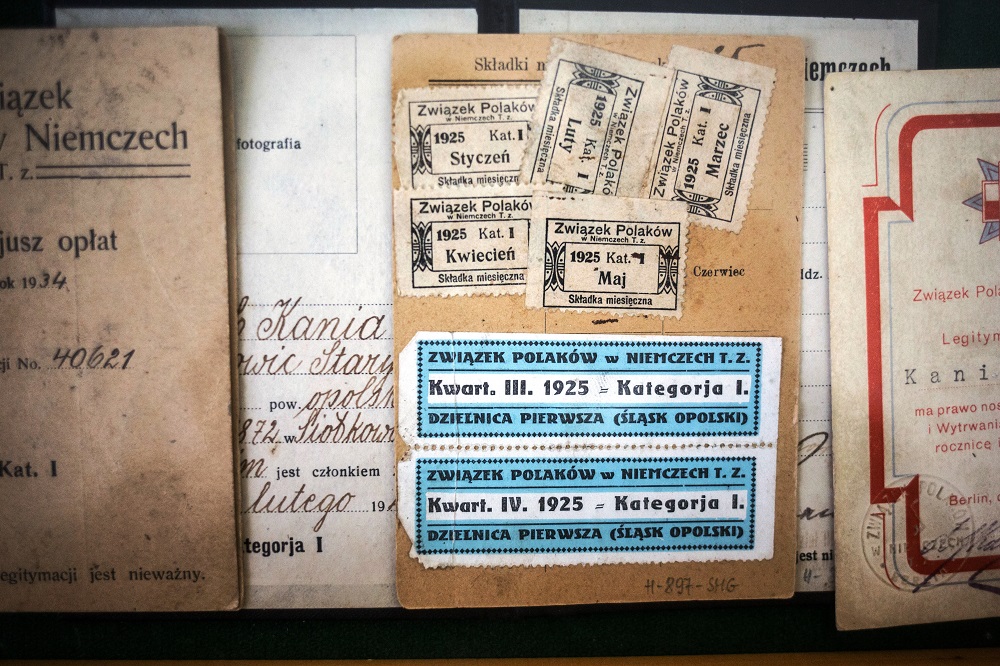 iązek
Niemczech
T. z.
jusz opłat
ok 1934
ji No. 40621
Kat. I
egitymacji jest nieważny.
fotografia
Kania
pow.
1872 w
jest członkiem
lutego 19
tegorja I
Składki
Związek Polaków
w Niemczech T. z.
1925 Kat. I
Styczeń
Składka miesięczn
Związek Polaków
1925 Kat. I
Luty
Składka miesięczna
Związek Polaków
w Niemczech T. z.
1925 Kat. I
Marzec
Składka miesięczna
Związek Polaków
w Niemczech T. z.
1925 Kat. I
Kwiecień
Składka miesięczn
Związek Polaków
w Niemczech T. z.
1925 Kat. I
Maj
Składka miesięczna
Czerwiec
ZWIĄZEK POLAKÓW w NIEMCZECH T. Z.
Kwart. III. 1925 = Kategorja I.
DZIELNICA PIERWSZA (ŚLĄSK OPOLSKI)
ZWIĄZEK POLAKÓW w NIEMCZECH T. Z.
Kwart. IV. 1925 = Kategorja I.
DZIELNICA PIERWSZA (ŚLĄSK OPOLSKI)
H-897-SHG
iemczech
ddz.
jest ni
Związek Pola
Legityn
Kani
ma prawo nos
i Wytrwani
rocznicę
Berlin,